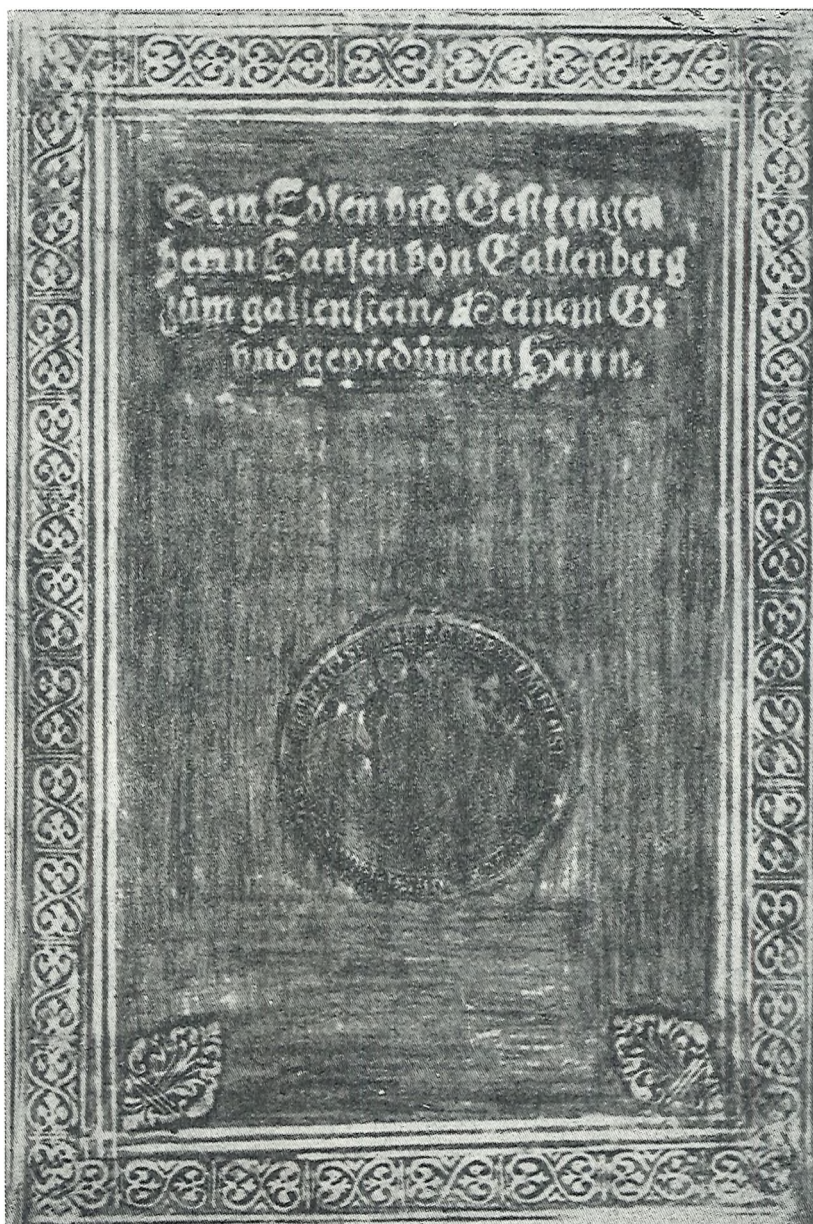 Dem Edlen vnd Gestrengen
herrn Hansen von Gallenberg
zům gallenstein, Meinem G:
vnd gepiedůnten Herrn.